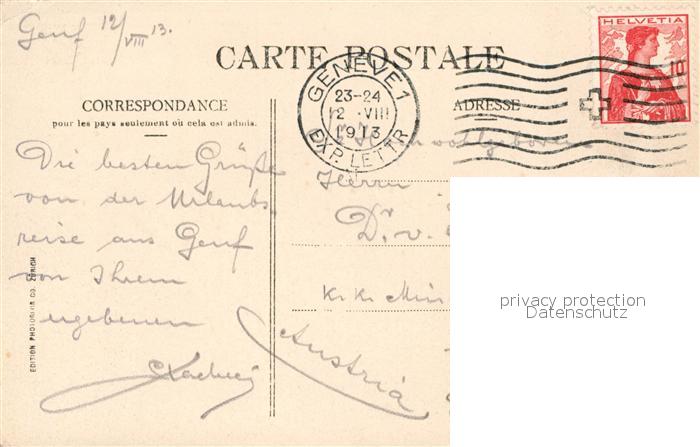 Genf 12/VIII 13.
CARTE POSTALE
HELVETIA
10
GENÈVE 1
23-24
12 · VIII
1913
EXP. LETTR
CORRESPONDANCE
pour les pays seulement où cela est admis.
ADRESSE
Die besten Grüße
von der Urlaubs
reise aus Genf
von Ihrem
ergebenen
Hochwohlgeboren
Herrn
Dr. v.
K. K. Min
Austria
EDITION PHOTOGLOB CO. ZÜRICH
privacy protection
Datenschutz